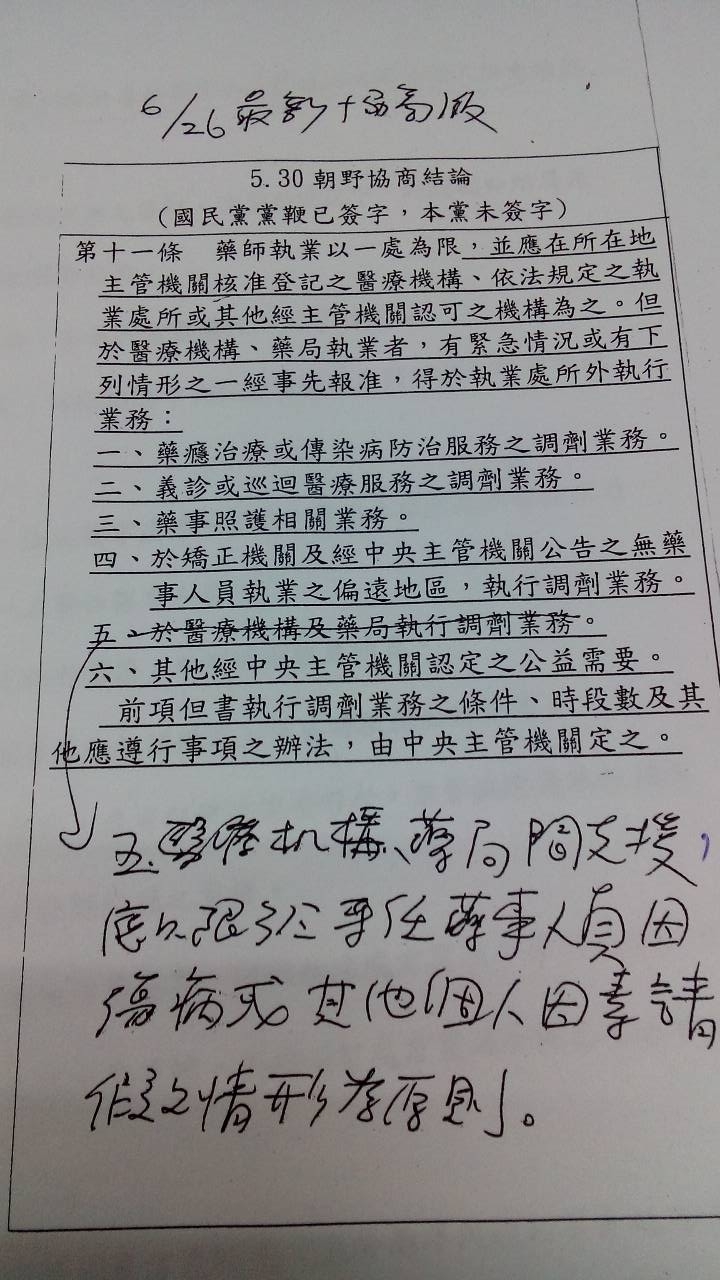 6/26最新協商版
5.30朝野協商結論
(國民黨黨鞭已簽字，本黨未簽字)
第十一條　藥師執業以一處為限，並應在所在地
主管機關核准登記之醫療機構、依法規定之執
業處所或其他經主管機關認可之機構為之。但
於醫療機構、藥局執業者，有緊急情況或有下
列情形之一經事先報准，得於執業處所外執行
業務：
一、藥癮治療或傳染病防治服務之調劑業務。
二、義診或巡迴醫療服務之調劑業務。
三、藥事照護相關業務。
四、於矯正機關及經中央主管機關公告之無藥
事人員執業之偏遠地區，執行調劑業務。
五、於醫療機構及藥局執行調劑業務。
六、其他經中央主管機關認定之公益需要。
前項但書執行調劑業務之條件、時段數及其
他應遵行事項之辦法，由中央主管機關定之。
五.醫療机構、藥局間支援，
應以限於專任藥事人員因
傷病或其他個人因素請
假之情形為原則。